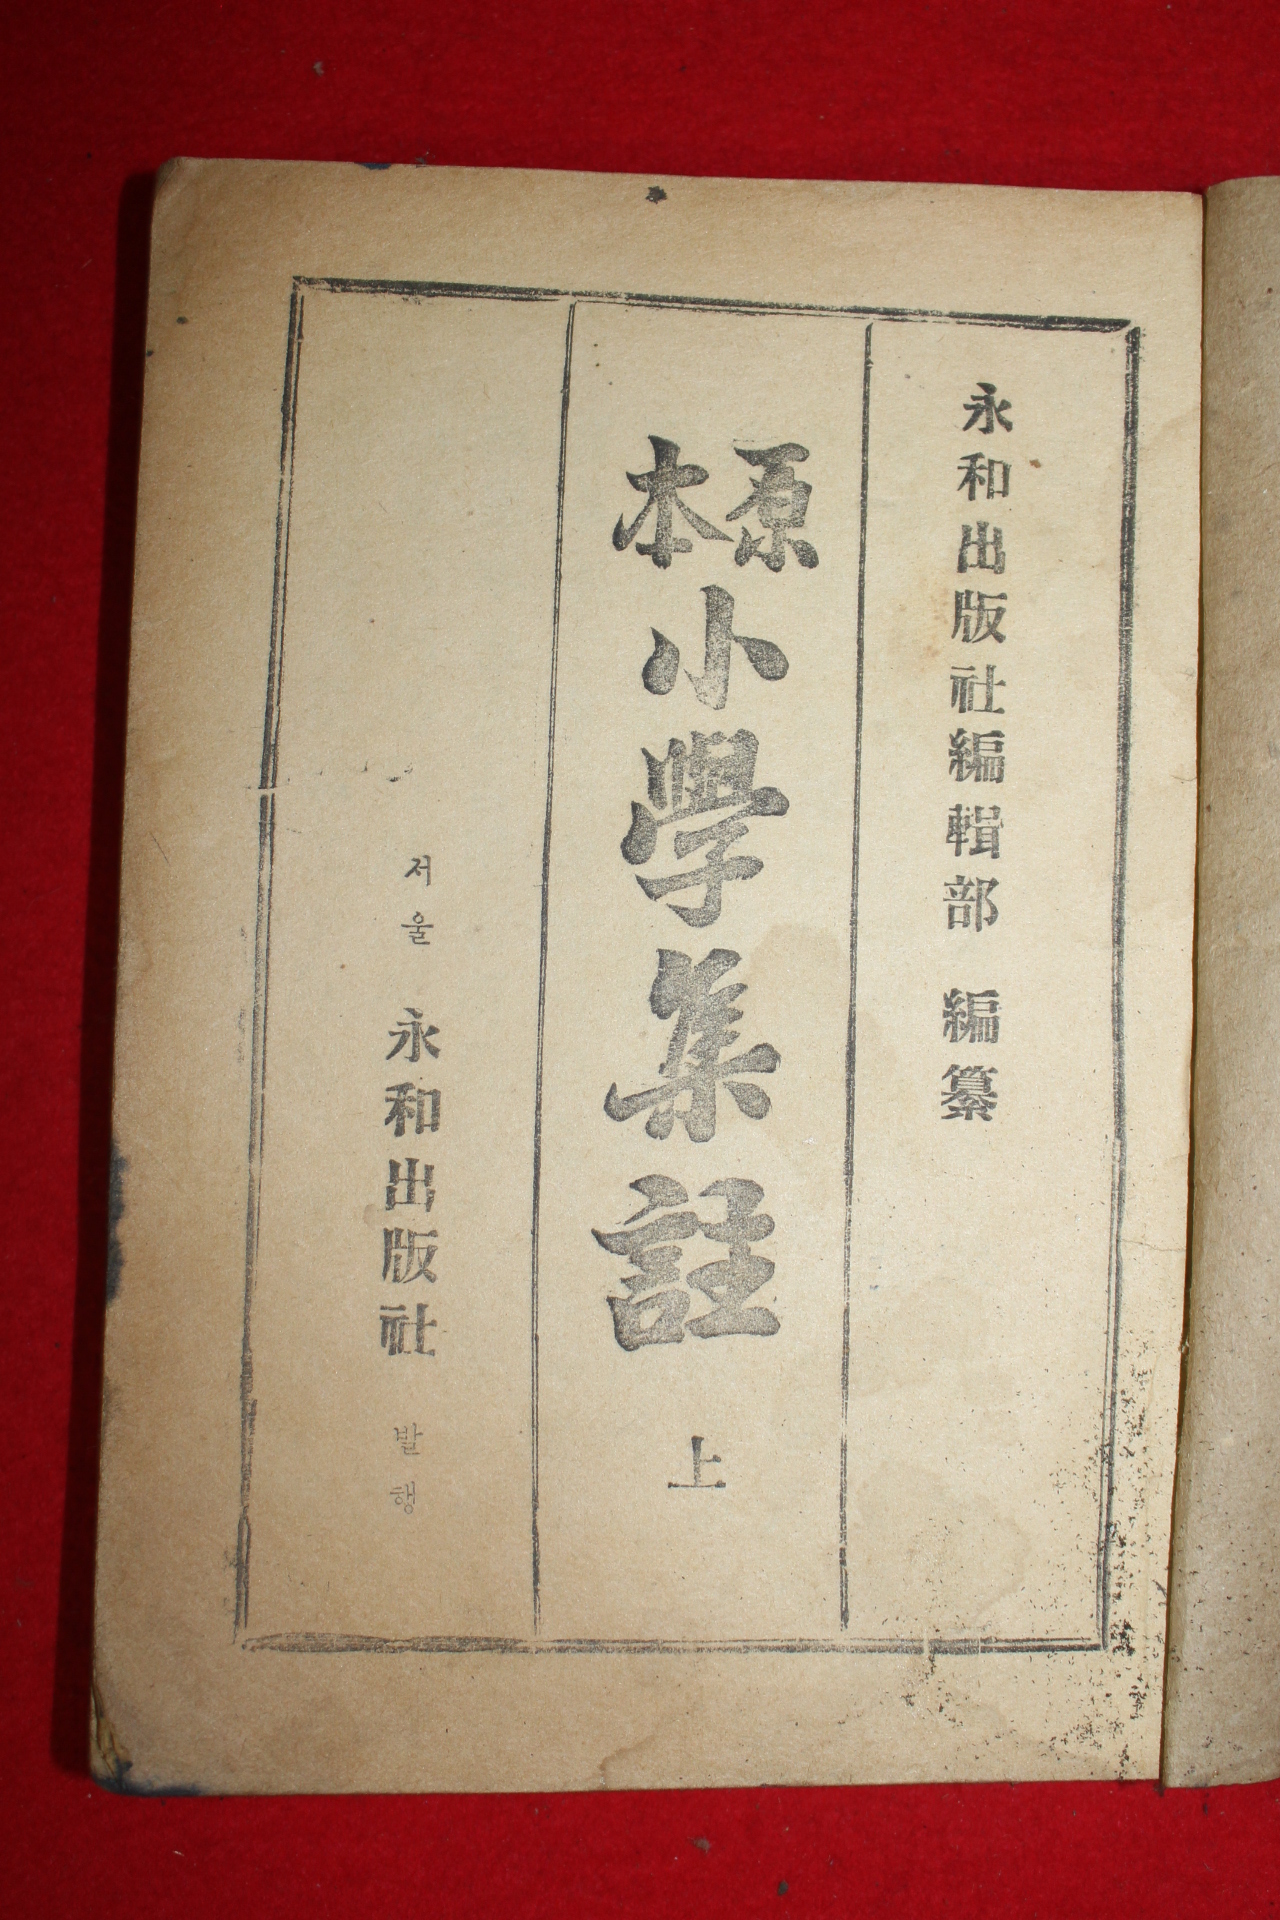 永和出版社編輯部 編纂
原本小學集註 上
서울 永和出版社 발행